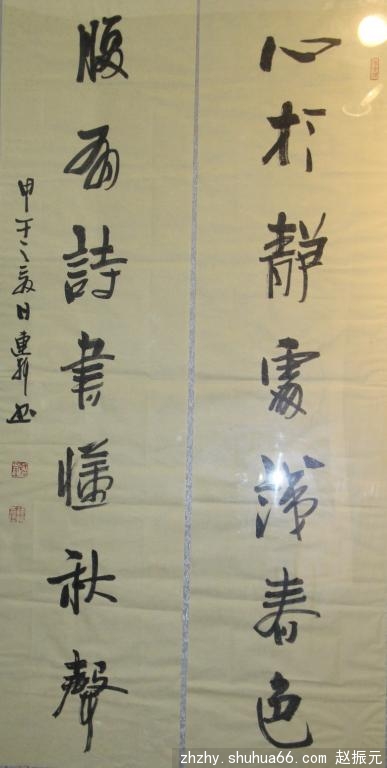 心於靜處識春色
腹有詩書懂秋聲
甲午之夏日連書
zhzhy.shuhua66.com 赵振元